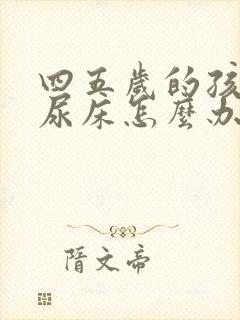 四五歲的孩
尿床怎麼办
隋文帝